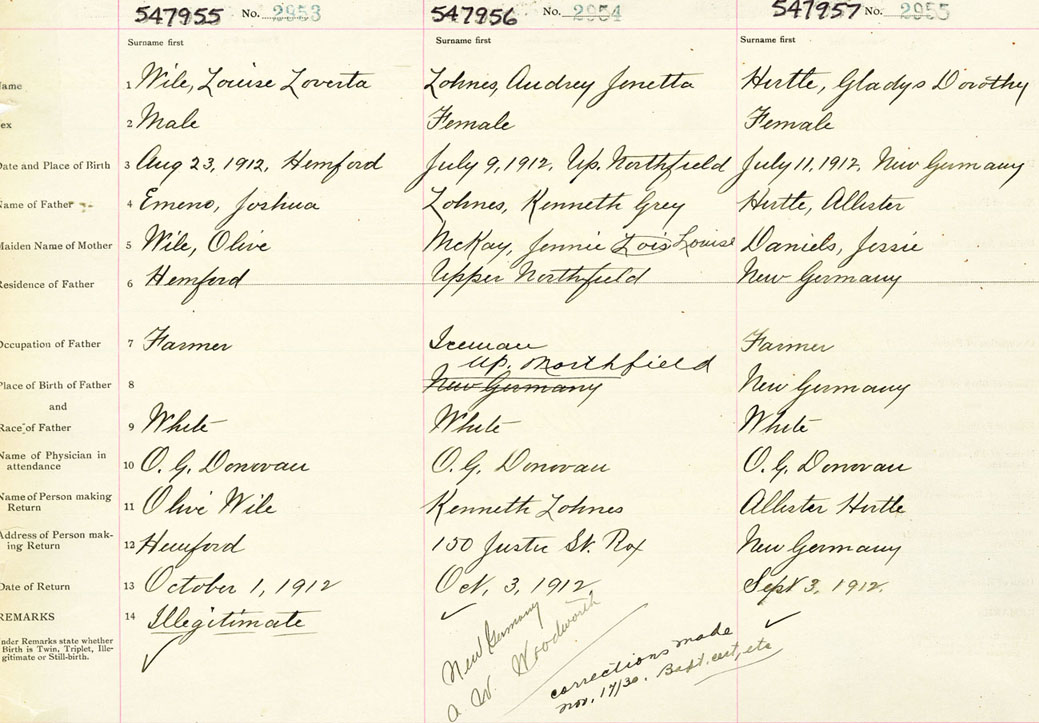 547955 No. 2953 547956 No. 2954 547957 No. 2955
Surname first Surname first Surname first
ame 1 Wile, Louise Loverta Zohnes, Audrey Jenetta Hirtle, Gladys Dorothy
ex 2 Male Female Female
Date and Place of Birth 3 Aug 23, 1912, Hemford July 9, 1912, Up. Northfield July 11, 1912, New Germany
Name of Father 4 Emeno, Joshua Zohnes, Kenneth Grey Hirtle, Allister
Maiden Name of Mother 5 Wile, Olive McKay, Jennie Lois Louise Daniels, Jessie
Residence of Father 6 Hemford Upper Northfield New Germany
Occupation of Father 7 Farmer Iceman Farmer
Up. Northfield
Place of Birth of Father 8 New Germany New Germany
and
Race of Father 9 White White White
Name of Physician in
attendance 10 O. G. Donovan O. G. Donovan O. G. Donovan
Name of Person making
Return 11 Olive Wile Kenneth Zohnes Allister Hirtle
Address of Person mak-
ing Return 12 Hemford 150 St. Rox New Germany
Date of Return 13 October 1, 1912 Oct, 3, 1912 Sept 3, 1912
REMARKS 14 Illegitimate
Under Remarks state whether
Birth is Twin, Triplet, Ille-
gitimate or Still-birth.
New Germany
a W. Woodworth
corrections made
Nov. 17/30. Bapt. cert, etc